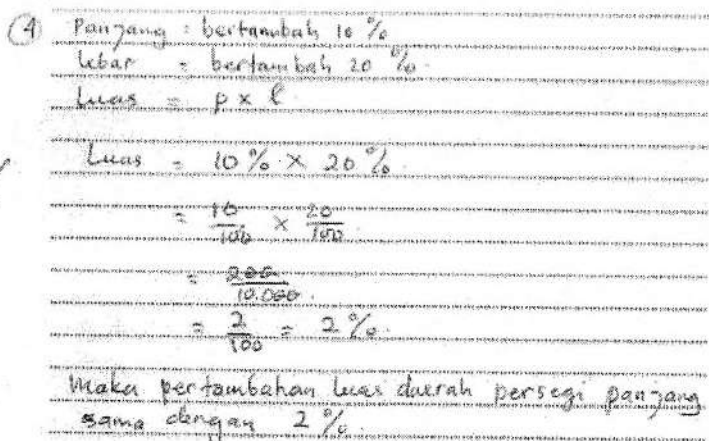 ④ Panjang : bertambah 10 %
lebar = bertambah 20 %.
Luas = p x l
Luas = 10 % x 20 %.
= 10/100 x 20/100.
= 200/10.000.
= 2/100 = 2 %.
Maka pertambahan luas daerah persegi panjang
sama dengan 2 %.